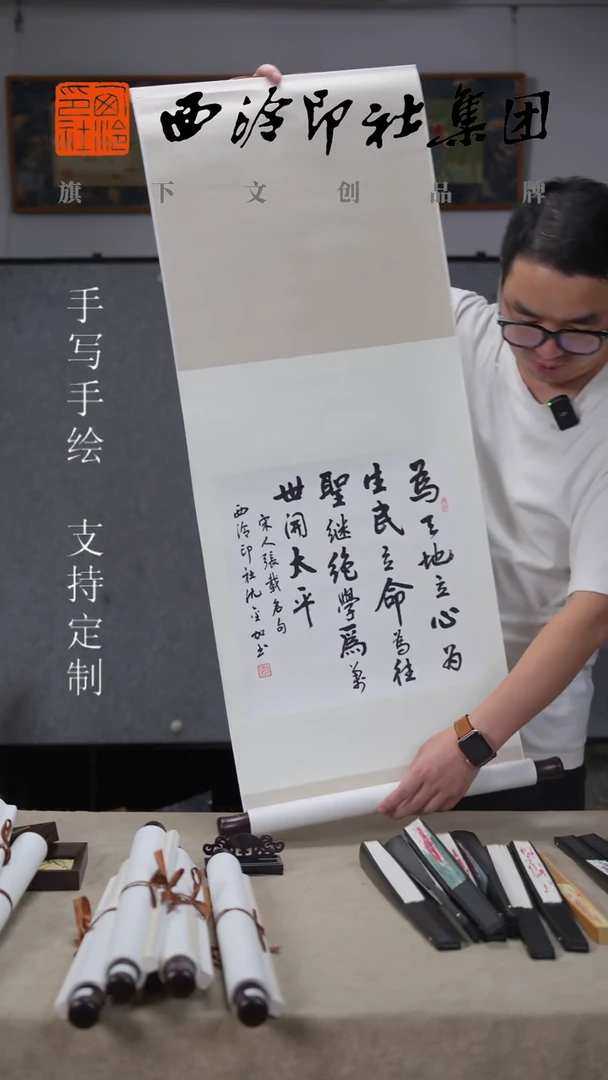 西泠印社
西泠印社集团
旗下文创品牌
手写手绘 支持定制
為天地立心为
生民立命為往
聖继绝學爲萬
世開太平
宋人張載名句
西泠印社